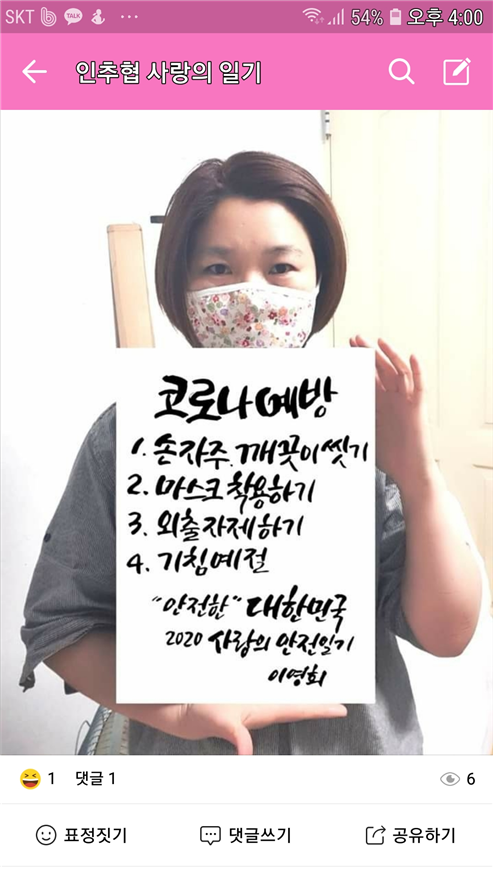 SKT TALK 54% 오후 4:00
인추협 사랑의 일기
코로나예방
1. 손자주. 깨끗이씻기
2. 마스크 착용하기
3. 외출자제하기
4. 기침예절
"안전한" 대한민국
2020 사랑의 안전일기
이영희
1 댓글 1 6
표정짓기 댓글쓰기 공유하기